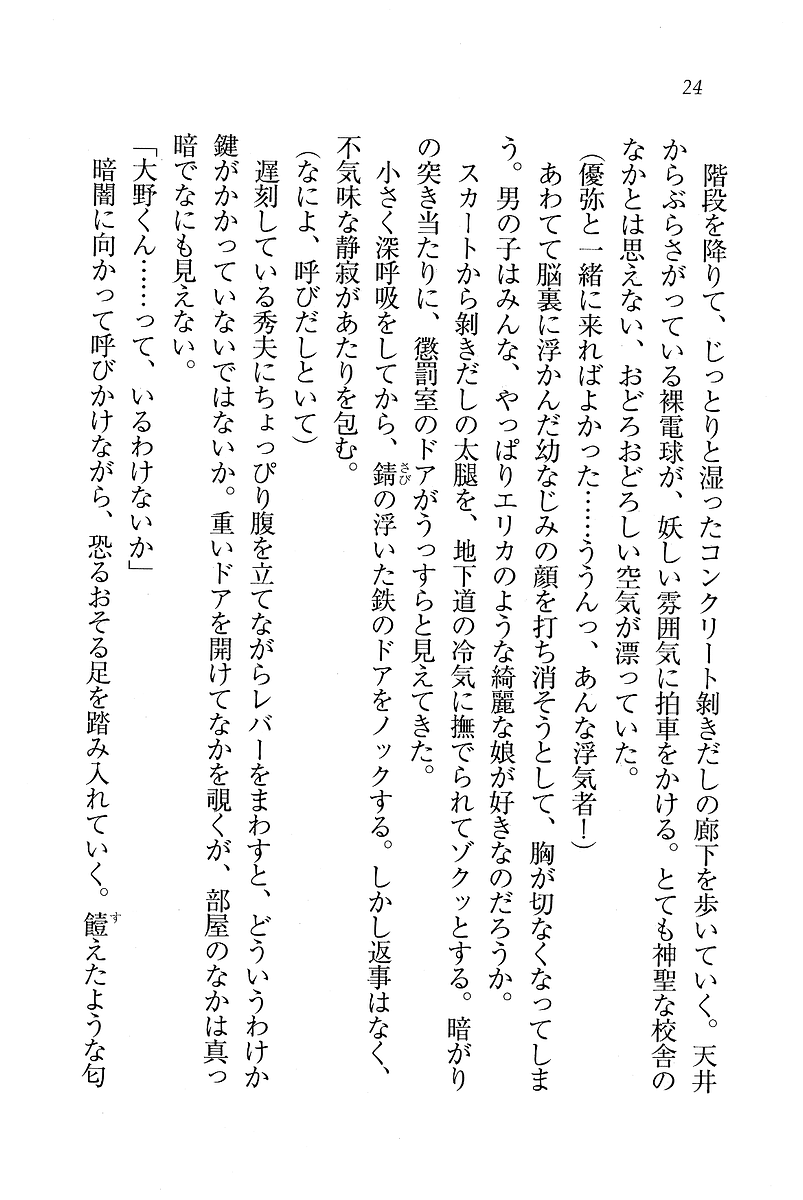 24
階段を降りて、じっとりと湿ったコンクリート剝きだしの廊下を歩いていく。天井
からぶらさがっている裸電球が、妖しい雰囲気に拍車をかける。とても神聖な校舎の
なかとは思えない、おどろおどろしい空気が漂っていた。
（優弥と一緒に来ればよかった……ううんっ、あんな浮気者！）
あわてて脳裏に浮かんだ幼なじみの顔を打ち消そうとして、胸が切なくなってしま
う。男の子はみんな、やっぱりエリカのような綺麗な娘が好きなのだろうか。
スカートから剝きだしの太腿を、地下道の冷気に撫でられてゾクッとする。暗がり
の突き当たりに、懲罰室のドアがうっすらと見えてきた。
小さく深呼吸をしてから、錆さびの浮いた鉄のドアをノックする。しかし返事はなく、
不気味な静寂があたりを包む。
（なによ、呼びだしといて）
遅刻している秀夫にちょっぴり腹を立てながらレバーをまわすと、どういうわけか
鍵がかかっていないではないか。重いドアを開けてなかを覗くが、部屋のなかは真っ
暗でなにも見えない。
「大野くん……って、いるわけないか」
暗闇に向かって呼びかけながら、恐るおそる足を踏み入れていく。饐すえたような匂